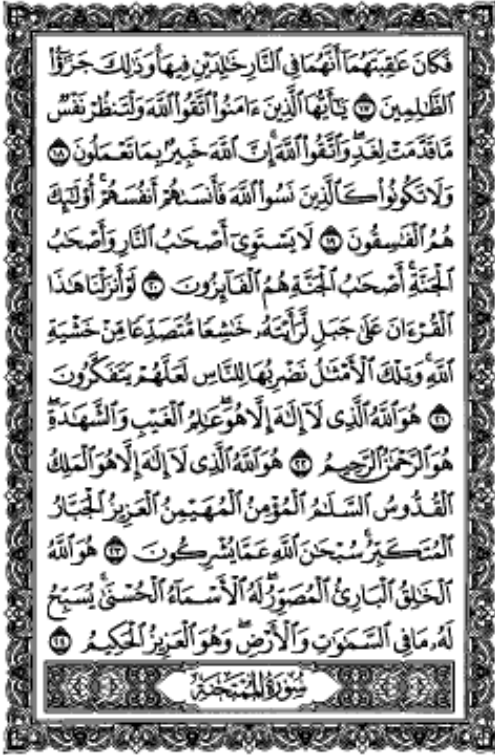 فَكَانَ عَٰقِبَتَهُمَآ أَنَّهُمَا فِي ٱلنَّارِ خَٰلِدَيْنِ فِيهَاۚ وَذَٰلِكَ جَزَٰٓؤُاْ
ٱلظَّٰلِمِينَ ١٧ يَٰٓأَيُّهَا ٱلَّذِينَ ءَامَنُواْ ٱتَّقُواْ ٱللَّهَ وَلْتَنظُرْ نَفْسٌ
مَّا قَدَّمَتْ لِغَدٍۖ وَٱتَّقُواْ ٱللَّهَۚ إِنَّ ٱللَّهَ خَبِيرُۢ بِمَا تَعْمَلُونَ ١٨
وَلَا تَكُونُواْ كَٱلَّذِينَ نَسُواْ ٱللَّهَ فَأَنسَىٰهُمْ أَنفُسَهُمْۚ أُوْلَٰٓئِكَ
هُمُ ٱلْفَٰسِقُونَ ١٩ لَا يَسْتَوِيٓ أَصْحَٰبُ ٱلنَّارِ وَأَصْحَٰبُ
ٱلْجَنَّةِۚ أَصْحَٰبُ ٱلْجَنَّةِ هُمُ ٱلْفَآئِزُونَ ٢٠ لَوْ أَنزَلْنَا هَٰذَا
ٱلْقُرْءَانَ عَلَىٰ جَبَلٍ لَّرَأَيْتَهُۥ خَٰشِعًا مُّتَصَدِّعًا مِّنْ خَشْيَةِ
ٱللَّهِۚ وَتِلْكَ ٱلْأَمْثَٰلُ نَضْرِبُهَا لِلنَّاسِ لَعَلَّهُمْ يَتَفَكَّرُونَ
٢١ هُوَ ٱللَّهُ ٱلَّذِي لَآ إِلَٰهَ إِلَّا هُوَۖ عَٰلِمُ ٱلْغَيْبِ وَٱلشَّهَٰدَةِۖ
هُوَ ٱلرَّحْمَٰنُ ٱلرَّحِيمُ ٢٢ هُوَ ٱللَّهُ ٱلَّذِي لَآ إِلَٰهَ إِلَّا هُوَ ٱلْمَلِكُ
ٱلْقُدُّوسُ ٱلسَّلَٰمُ ٱلْمُؤْمِنُ ٱلْمُهَيْمِنُ ٱلْعَزِيزُ ٱلْجَبَّارُ
ٱلْمُتَكَبِّرُۚ سُبْحَٰنَ ٱللَّهِ عَمَّا يُشْرِكُونَ ٢٣ هُوَ ٱللَّهُ
ٱلْخَٰلِقُ ٱلْبَارِئُ ٱلْمُصَوِّرُۖ لَهُ ٱلْأَسْمَآءُ ٱلْحُسْنَىٰۚ يُسَبِّحُ
لَهُۥ مَا فِي ٱلسَّمَٰوَٰتِ وَٱلْأَرْضِۖ وَهُوَ ٱلْعَزِيزُ ٱلْحَكِيمُ ٢٤
سُورَةُ ٱلْمُمْتَحَنَةِ